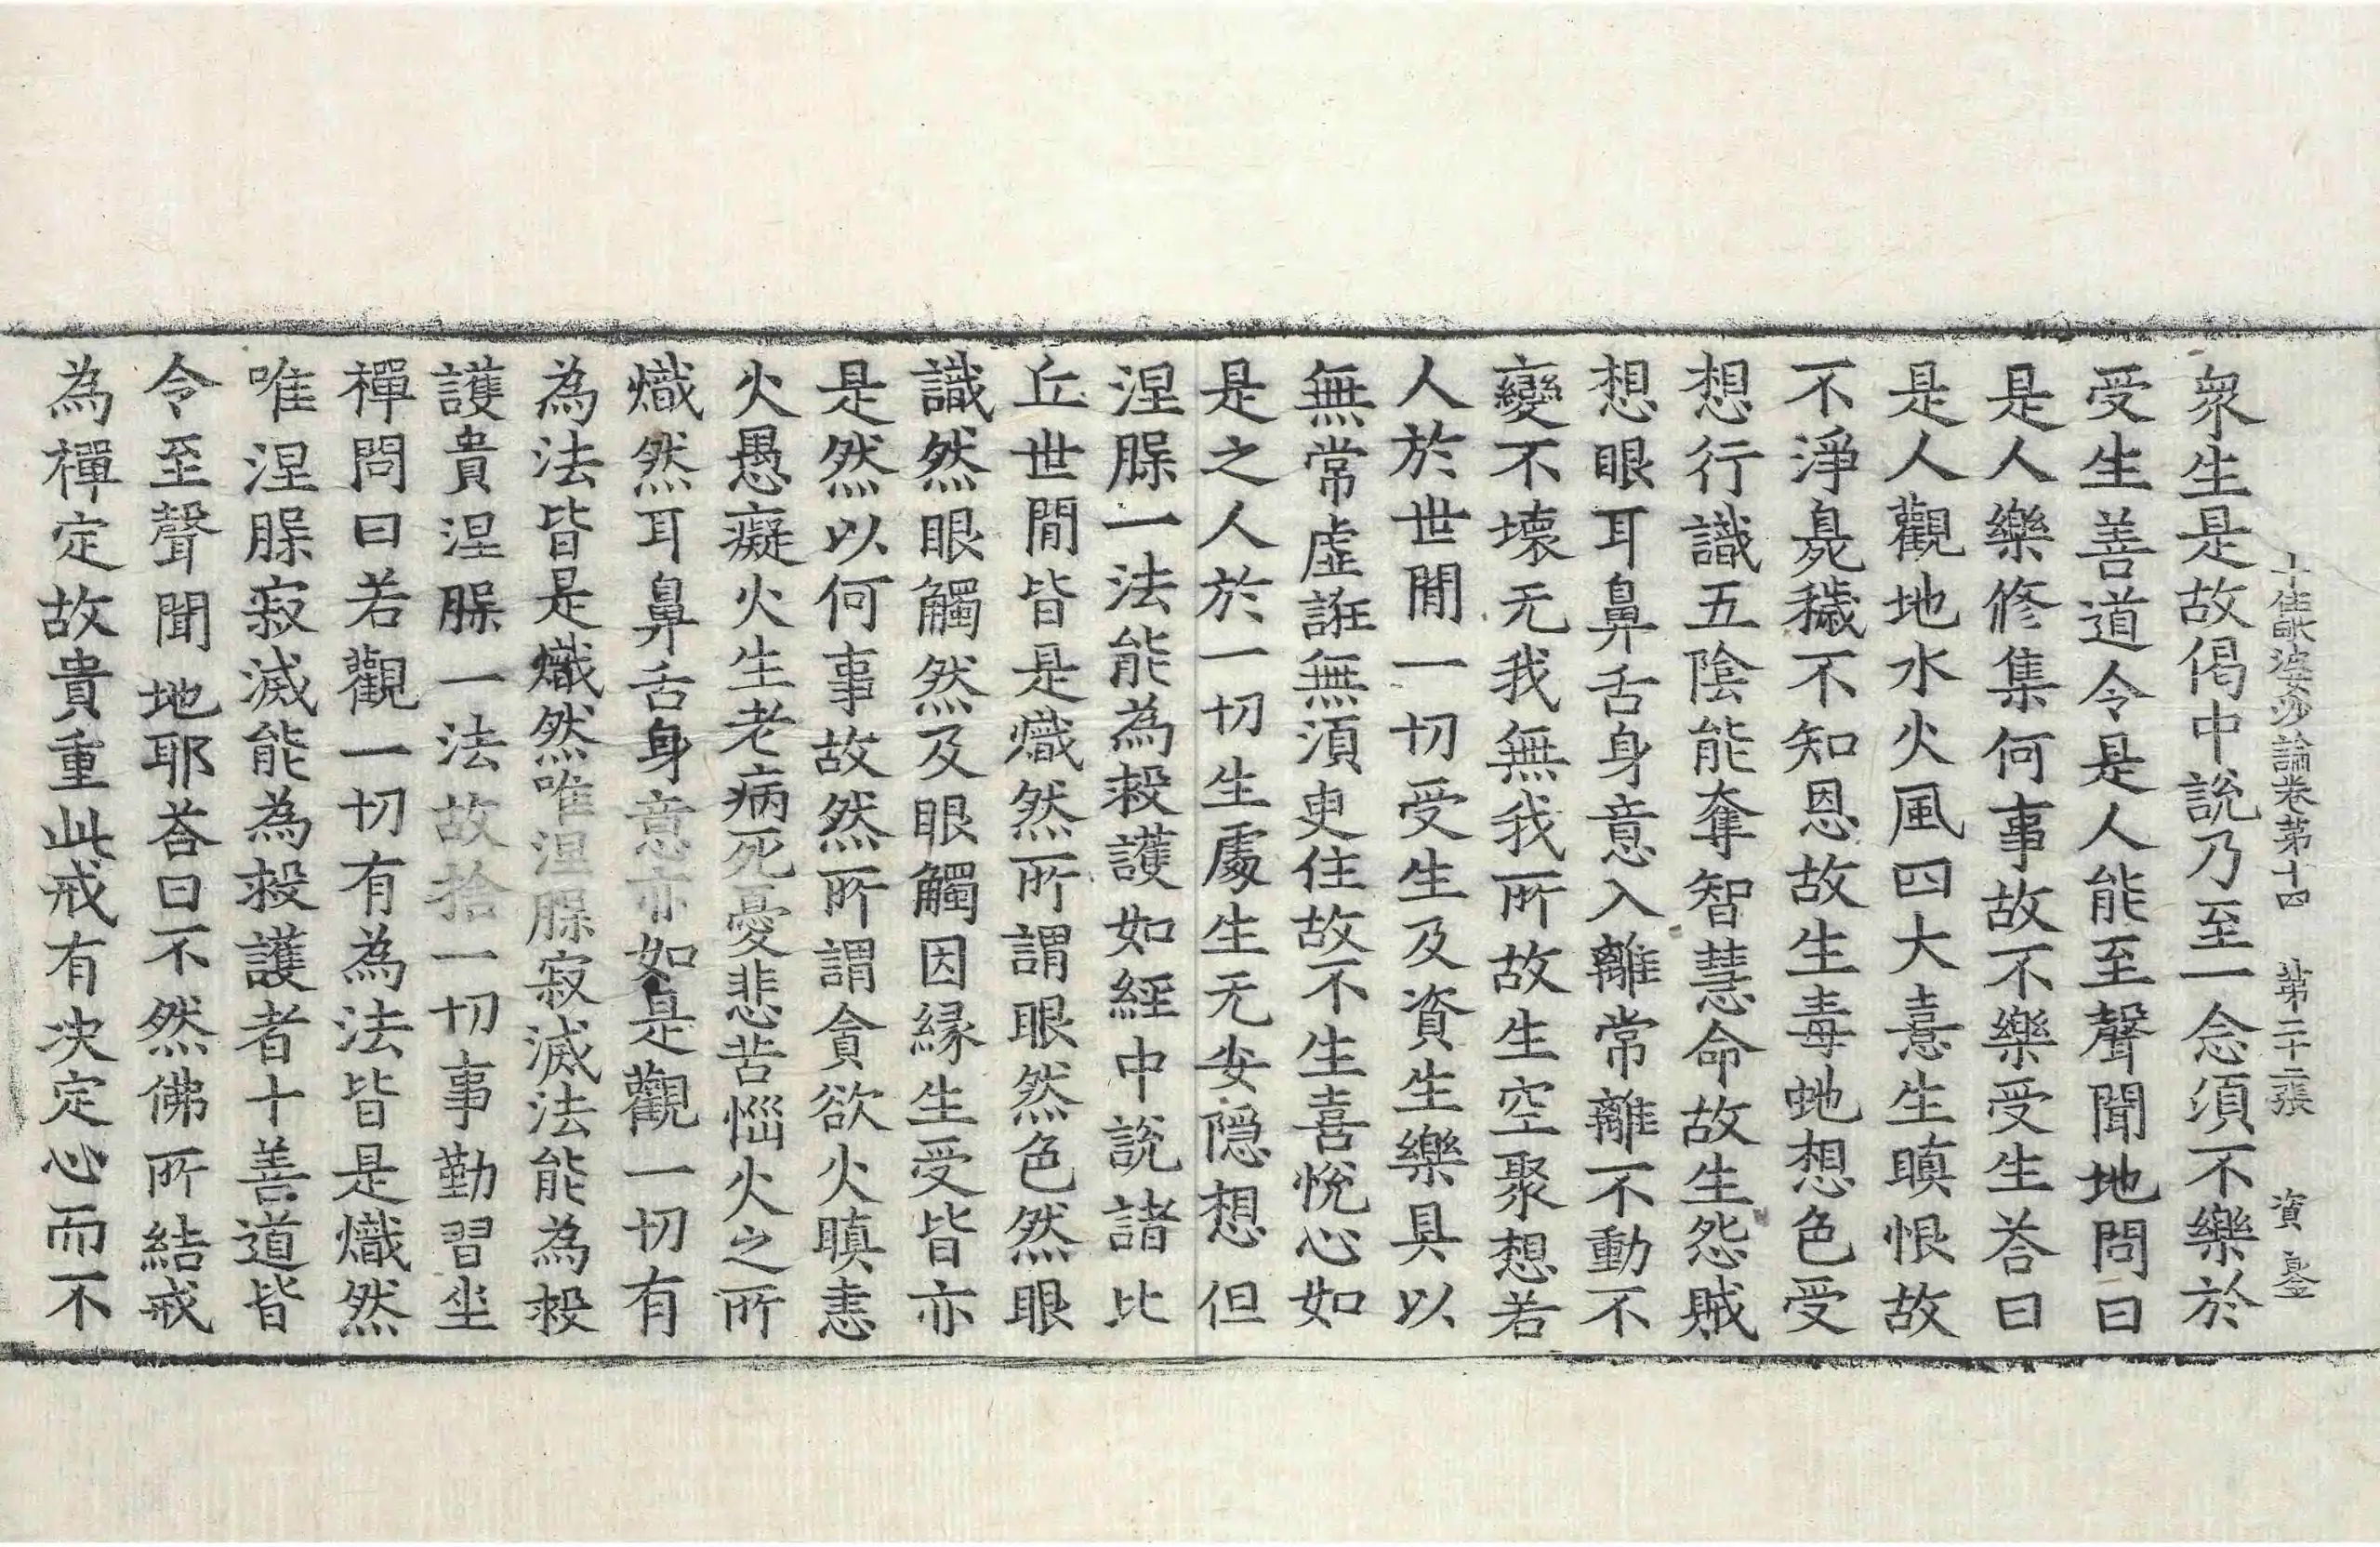 十住毗婆沙論卷第十四　第二十二張　資
衆生是故偈中說乃至一念須不樂於
受生善道令是人能至聲聞地問曰
是人樂修集何事故不樂受生荅曰
是人觀地水火風四大憙生瞋恨故
不淨臭穢不知恩故生毒虵想色受
想行識五陰能奪智慧命故生怨賊
想眼耳鼻舌身意入離常離不動不
變不壞无我無我所故生空聚想若
人於世閒一切受生及資生樂具以
無常虛誑無須臾住故不生喜悅心如
是之人於一切生處生无安隠想但
涅槃一法能為救護如經中說諸比
丘世閒皆是熾然所謂眼然色然眼
識然眼觸然及眼觸因緣生受皆亦
是然以何事故然所謂貪欲火瞋恚
火愚癡火生老病死憂悲苦惱火之所
熾然耳鼻舌身意亦如是觀一切有
為法皆是熾然唯涅槃寂滅法能為救
護貴涅槃一法故捨一切事勤習坐
禪問曰若觀一切有為法皆是熾然
唯涅槃寂滅能為救護者十善道皆
令至聲聞地耶荅曰不然佛所結戒
為禪定故貴重此戒有決定心而不